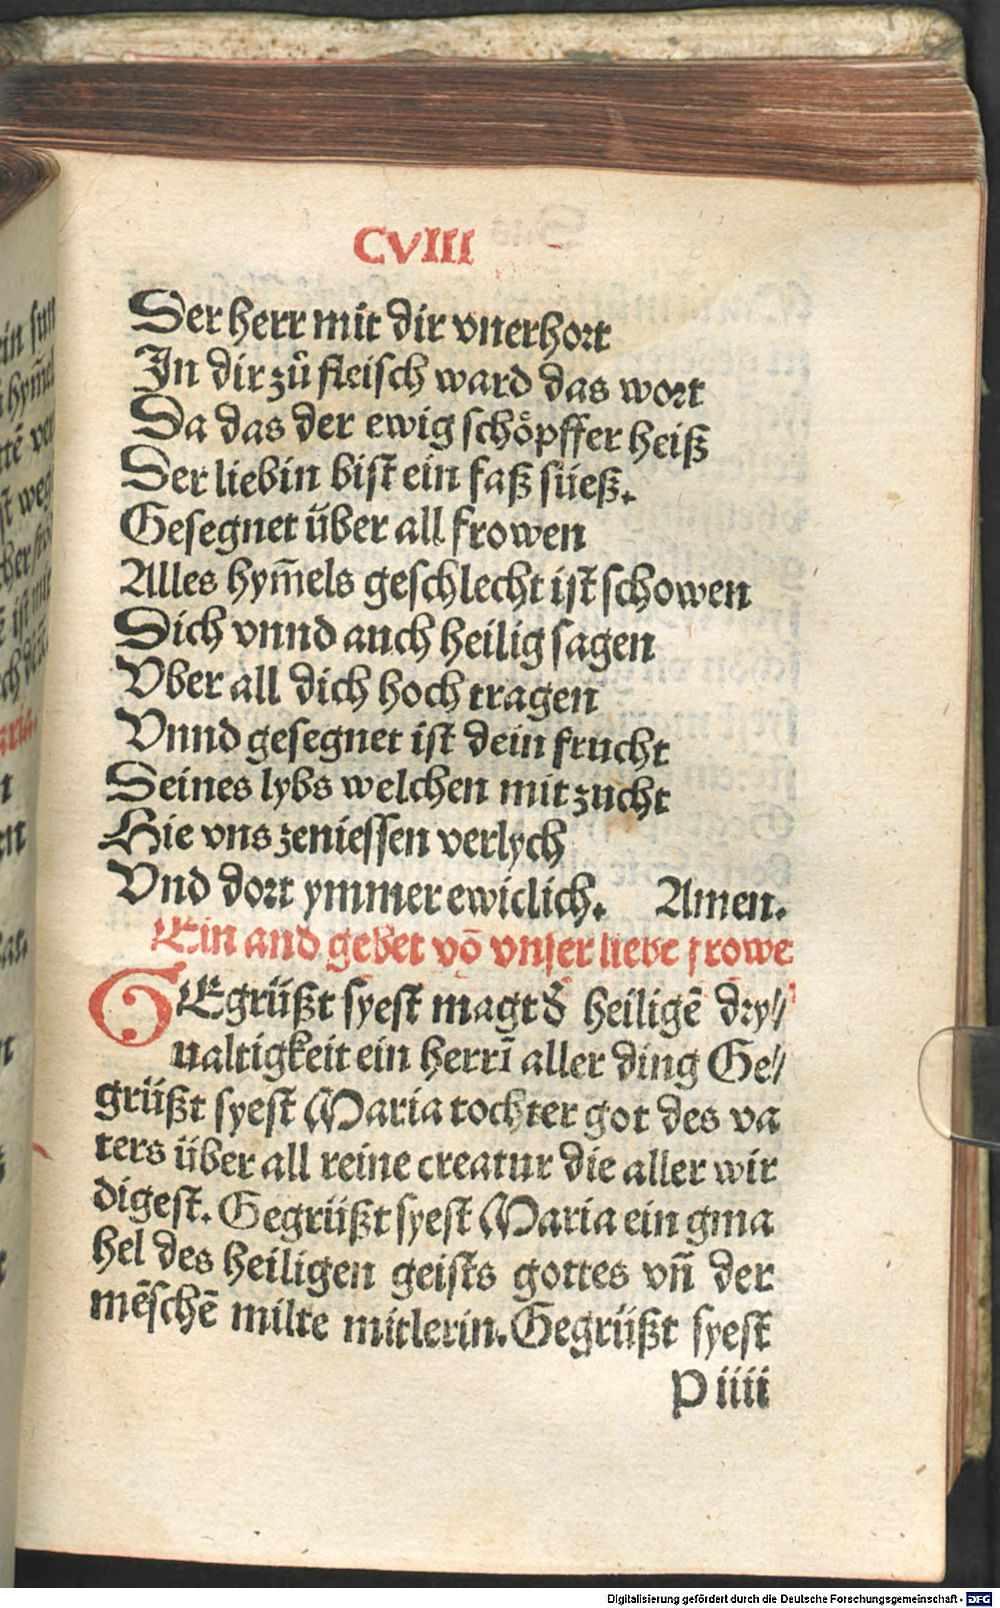 CVIII
Der herr mit dir vnerhort
In dir zů fleisch ward das wort
Da das der ewig schöpffer heiß
Der liebin bist ein faß süeß.
Gesegnet über all frowen
Alles hym̄els geschlecht ist schowen
Dich vnnd auch heilig sagen
Vber all dich hoch tragen
Vnnd gesegnet ist dein frucht
Deines lybs welchen mit zucht
Hie vns zeniessen verlych
Vnd dort ymmer ewiclich. Amen.
Ein and gebet vō vnser liebe frowe
GEgrüßt syest magt d̕ heiligē dry//
ualtigkeit ein herrī aller ding Ge//
grüßt syest Maria tochter got des va
ters über all reine creatur die aller wir
digest. Gegrüßt syest Maria ein gma
hel des heiligen geists gottes vn̄ der
mēschē milte mitlerin. Gegrüßt syest
p iiii
Digitalisierung gefördert durch die Deutsche Forschungsgemeinschaft - DFG